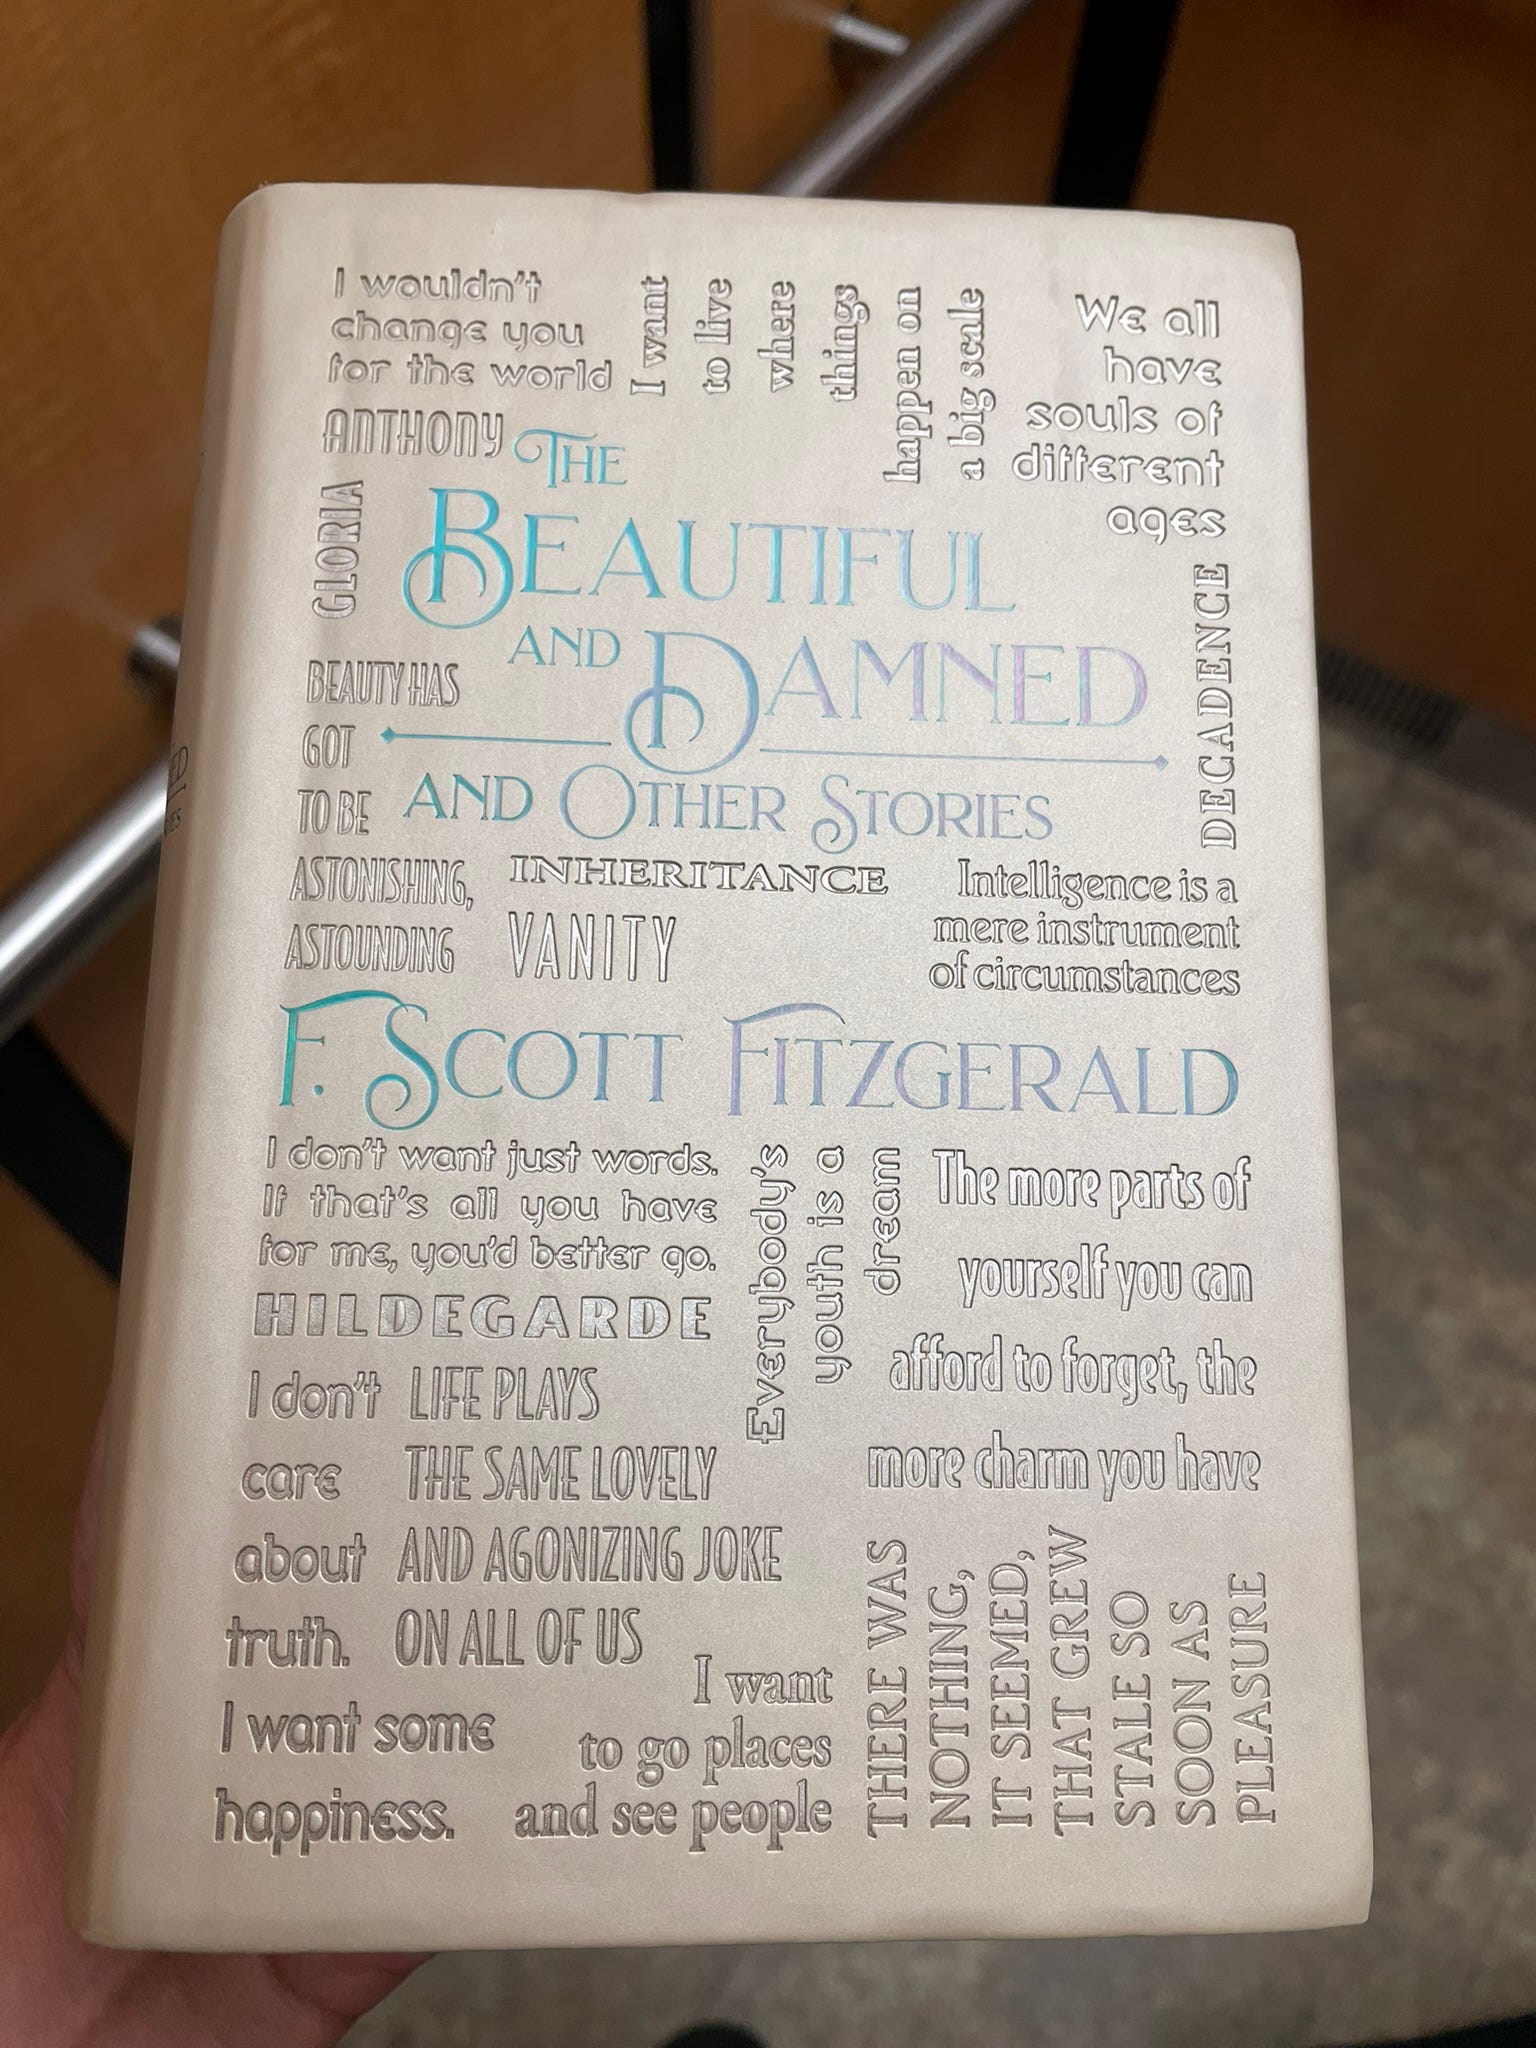 I wouldn't
change you
for the world
I want
to live
where
things
happen on
a big scale
We all
have
souls of
different
ages
ANTHONY
GLORIA
THE
BEAUTIFUL
AND DAMNED
AND OTHER STORIES
DECADENCE
BEAUTY HAS
GOT
TO BE
ASTONISHING,
ASTOUNDING
INHERITANCE
VANITY
Intelligence is a
mere instrument
of circumstances
F. SCOTT FITZGERALD
I don't want just words.
If that's all you have
for me, you'd better go.
HILDEGARDE
Everybody's
youth is a
dream
The more parts of
yourself you can
afford to forget, the
more charm you have
I don't
care
about
truth.
I want some
happiness.
LIFE PLAYS
THE SAME LOVELY
AND AGONIZING JOKE
ON ALL OF US
I want
to go places
and see people
THERE WAS
NOTHING,
IT SEEMED,
THAT GREW
STALE SO
SOON AS
PLEASURE